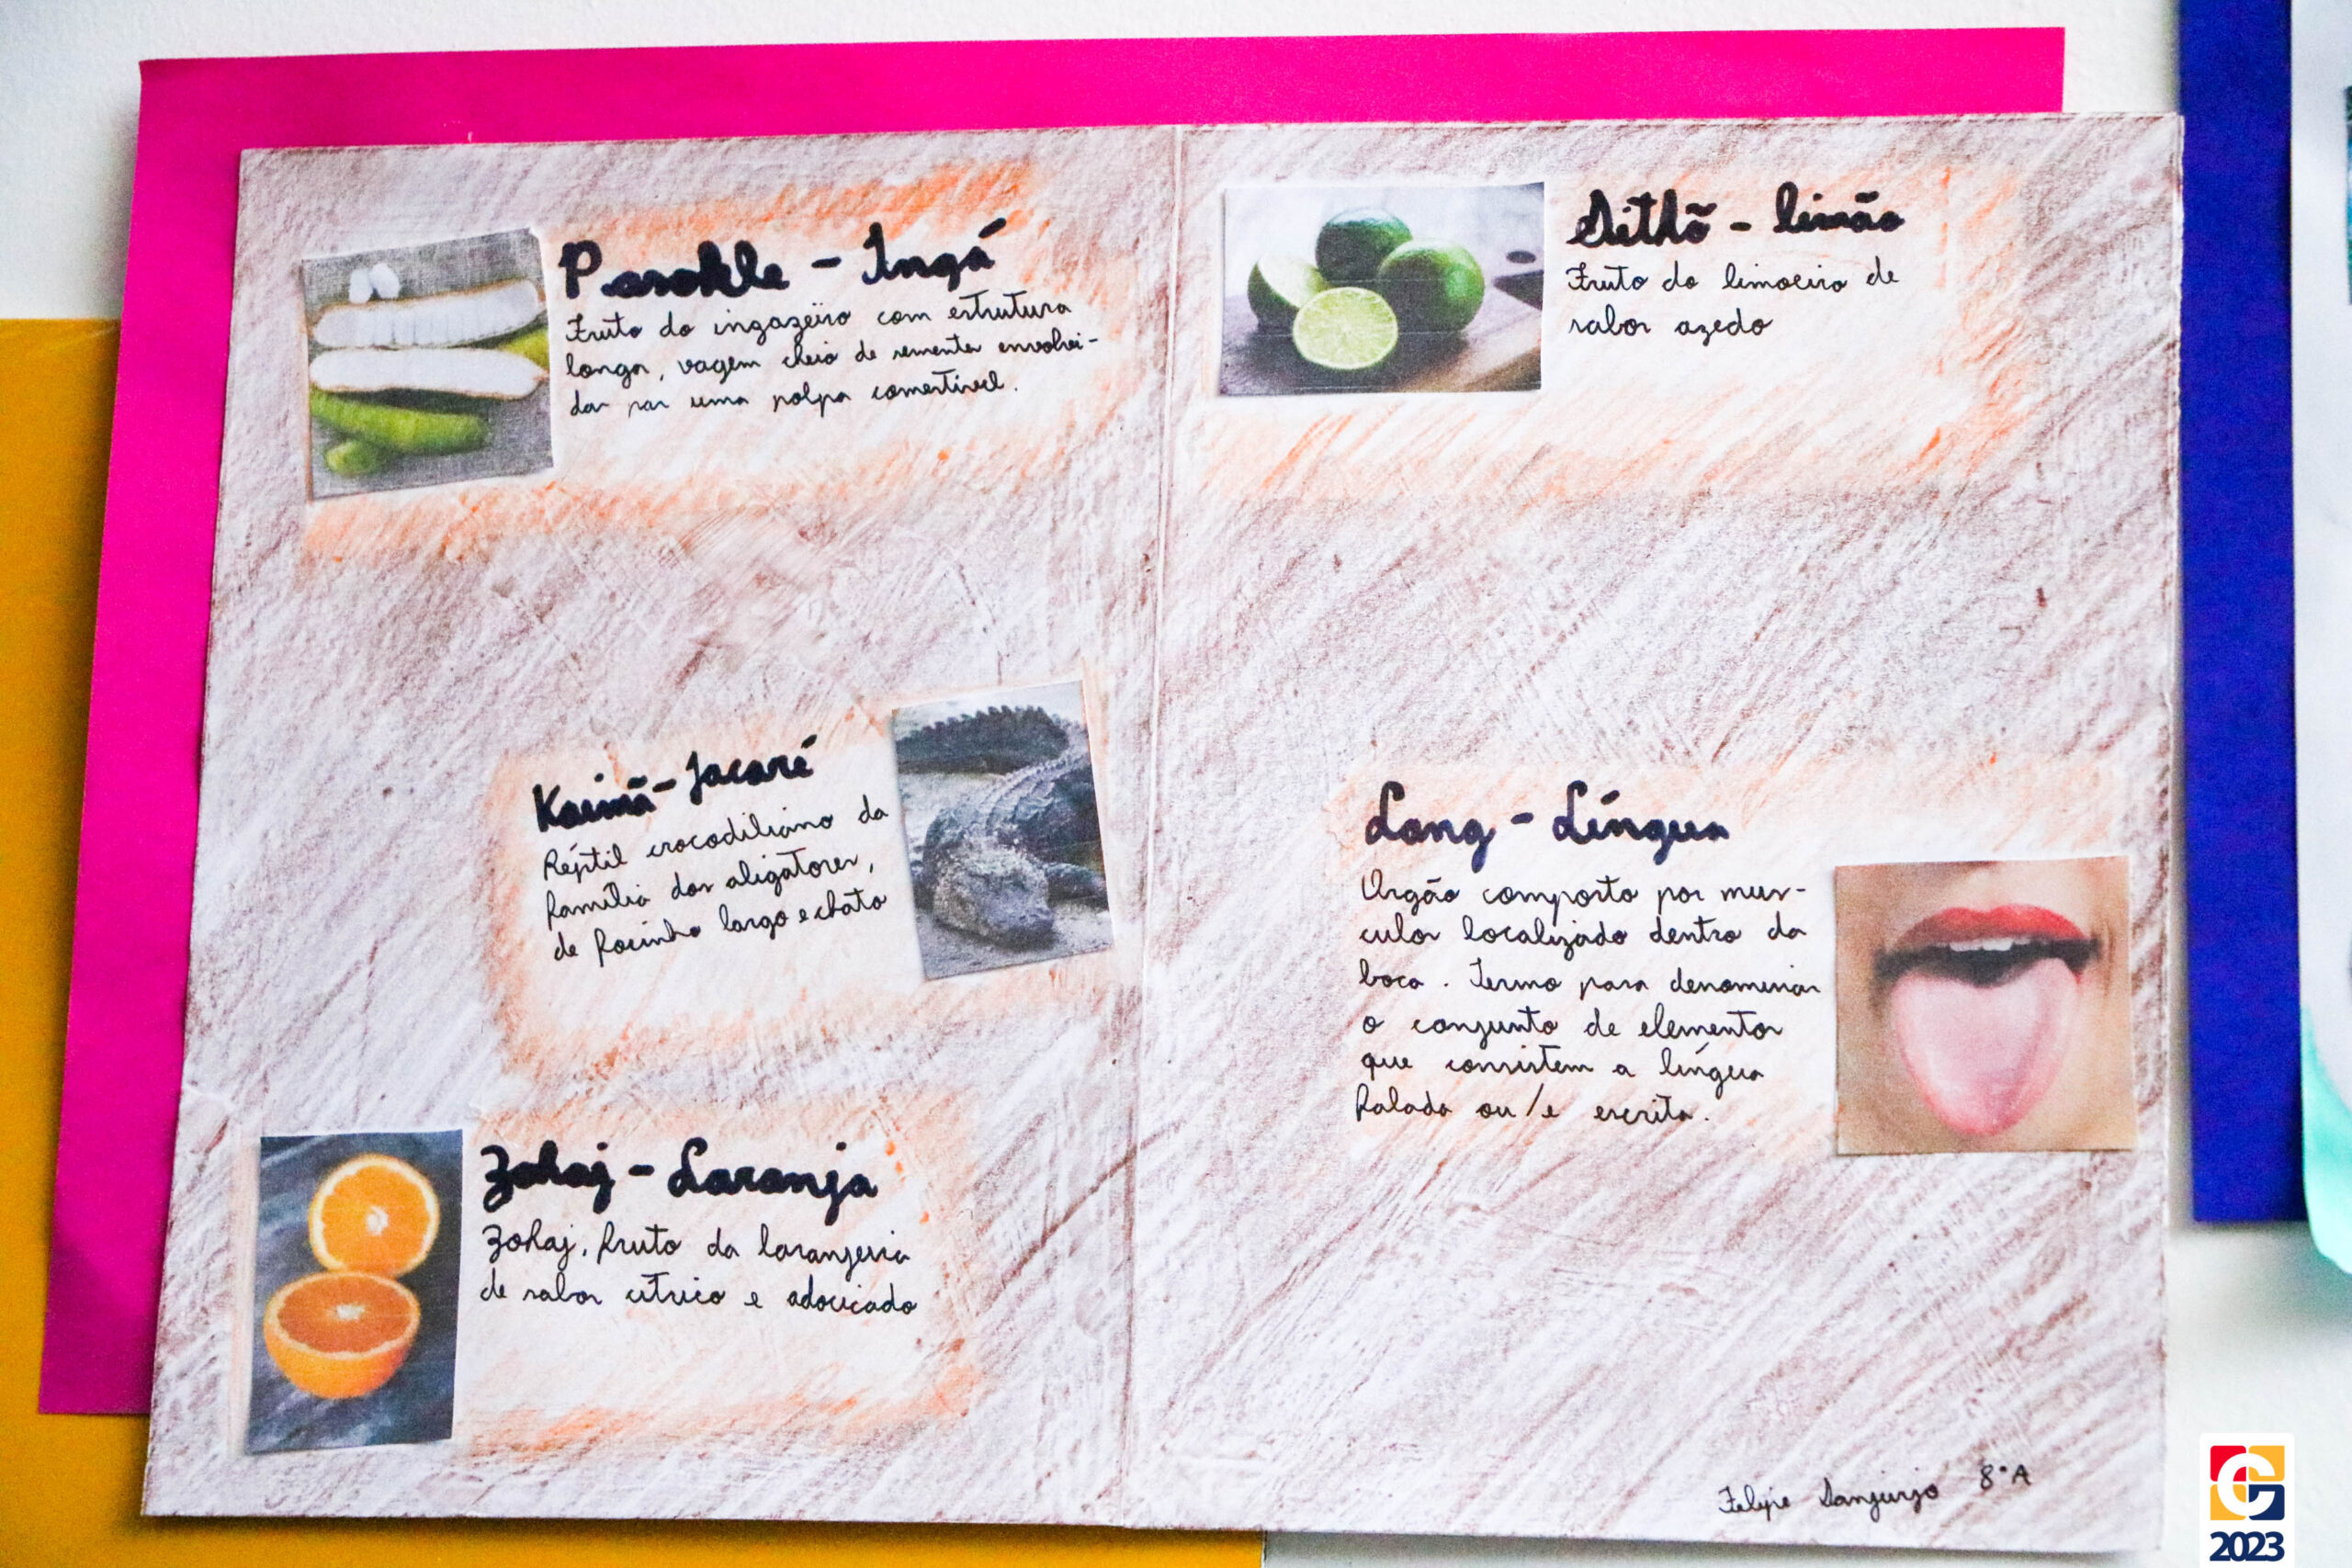 - Ingá
Fruto do ingazeiro com estrutura
longa, vagem cheia de sementes envolvi-
das por uma polpa comestível.
Kaimã - Jacaré
Réptil crocodiliano da
família dos aligatores,
de focinho largo e chato
Zohaj - Laranja
Zohaj, fruto da laranjeira
de sabor cítrico e adocicado
- limão
Fruto do limoeiro de
sabor azedo
Lang - Língua
Orgão composto por mús-
culos localizado dentro da
boca. Termo para denominar
o conjunto de elementos
que consistem a língua
falada ou/e escrita.
Felipe Sanjurjo 8°A
2023